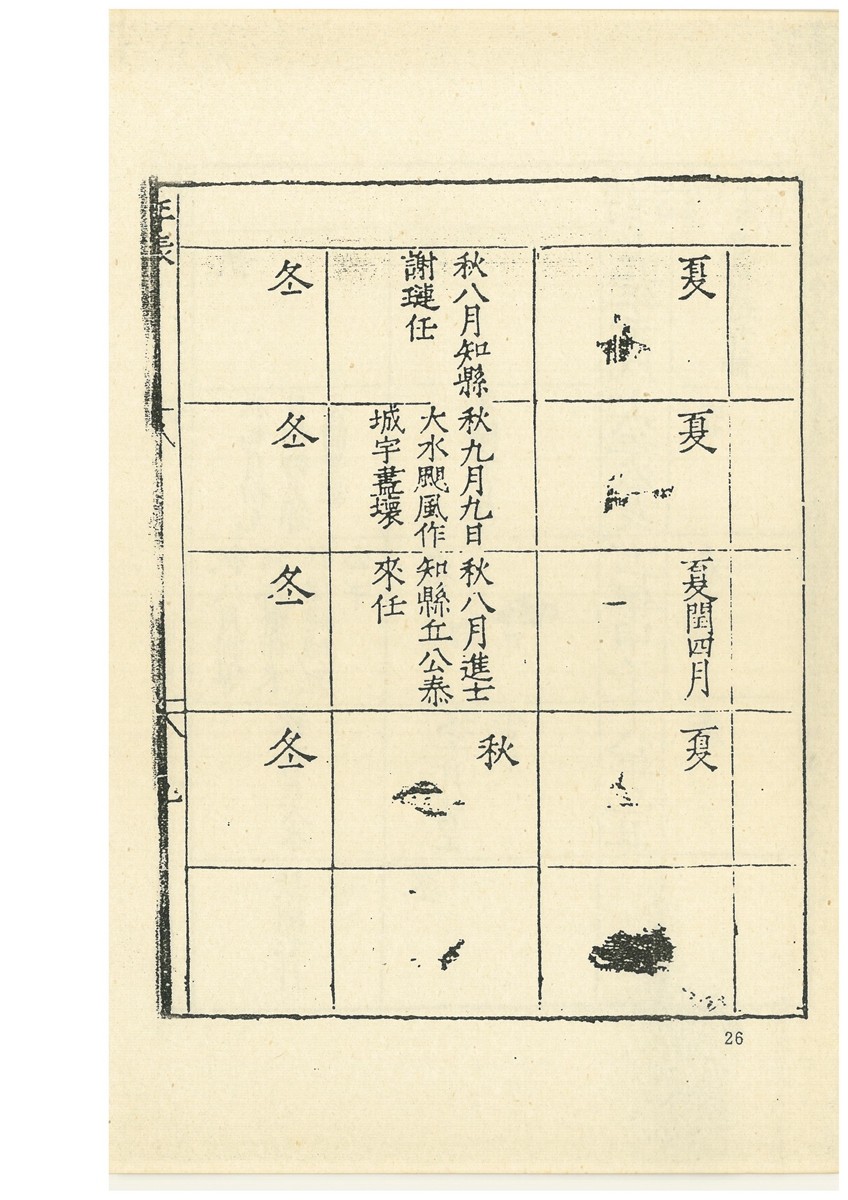 夏
秋八月知縣
謝璉任
冬
夏
秋九月九日
大水颶風作
城宇盡壞
冬
夏閏四月
秋八月進士
知縣丘公泰
來任
冬
夏
秋
冬
年表
26